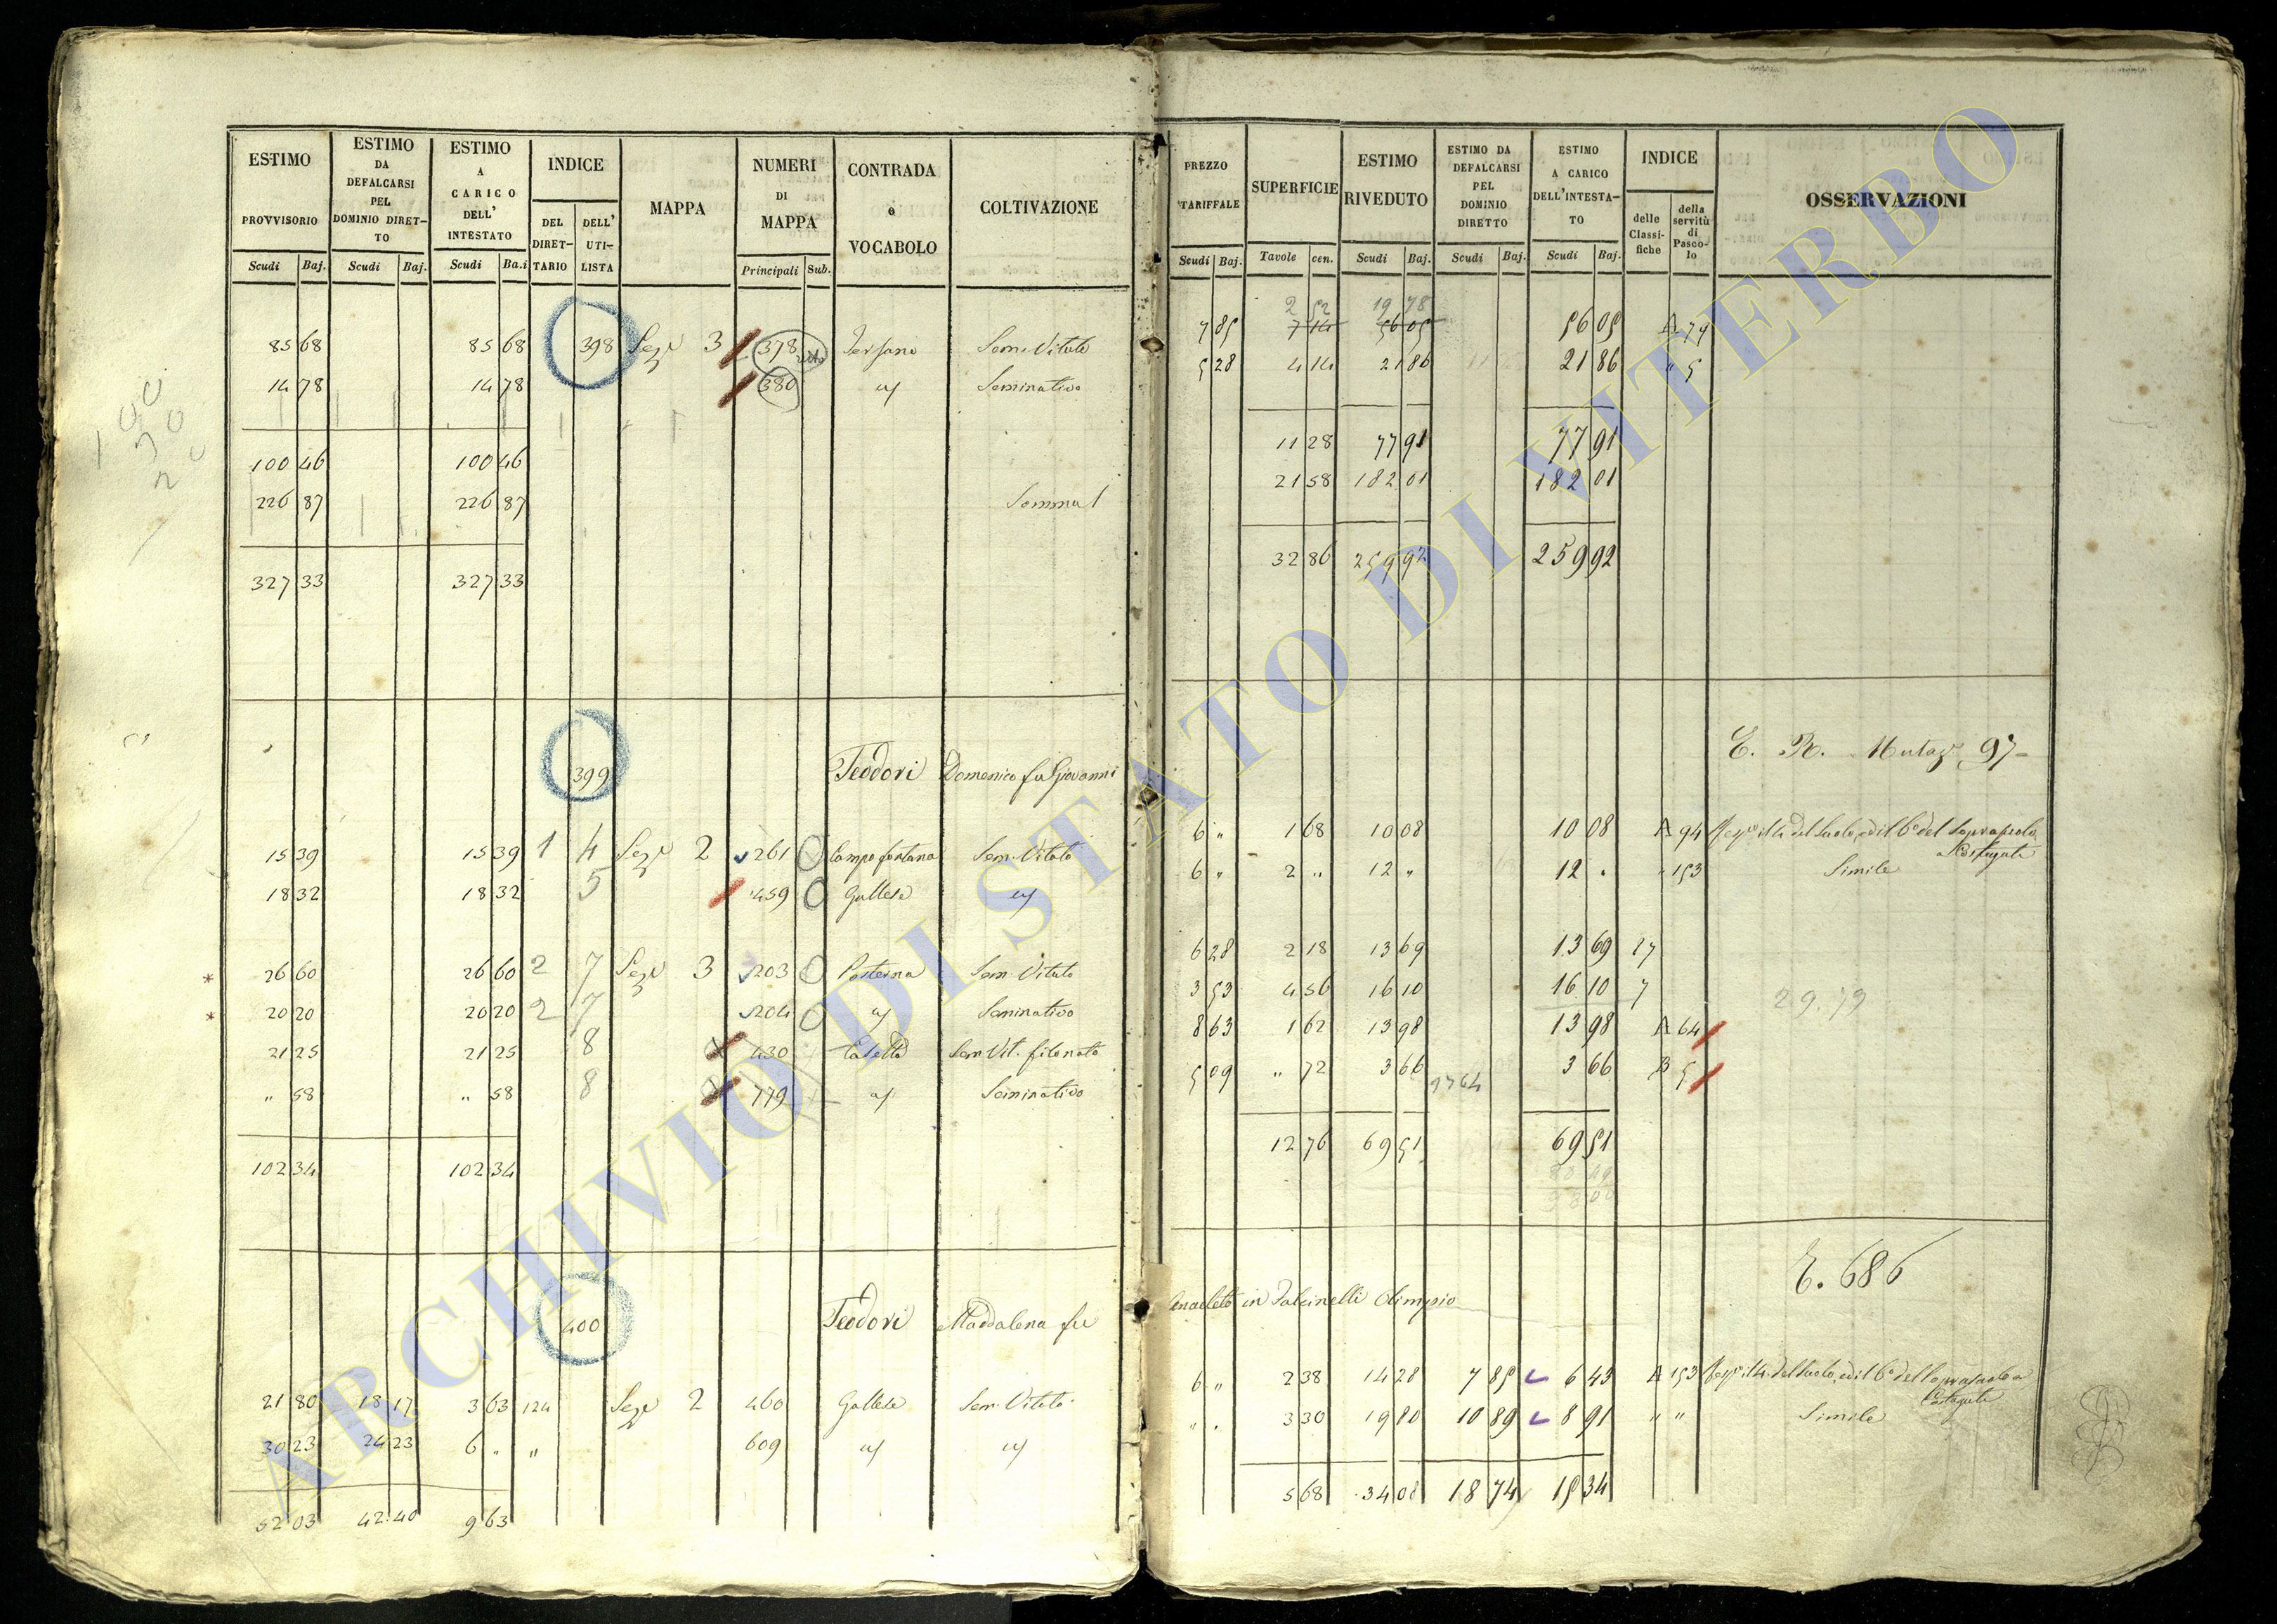 ESTIMO PROVVISORIO | ESTIMO DA DEFALCARSI PEL DOMINIO DIRET-TO | ESTIMO A CARICO DELL' INTESTATO | INDICE | MAPPA | NUMERI DI MAPPA | CONTRADA o VOCABOLO | COLTIVAZIONE
DEL DIRET-TARIO | DELL' UTI-LISTA
Scudi | Baj. | Scudi | Baj. | Scudi | Ba.i | Principali | Sub.
85 68 | 85 68 | 398 | Sez.e 3 | 378 | Sem. Vitato
14 78 | 14 78 | 380 | Seminativo
100 46 | 100 46
226 87 | 226 87
327 33 | 327 33
399 | Teodori Domenico fu Giovanni
15 39 | 15 39 | 1 | 4 | Sez.e 2 | 261 | Campo fontana | Sem. Vitato
18 32 | 18 32 | 5 | 459 | Gallese
26 60 | 26 60 | 2 | 7 | Sez.e 3 | 203 | Posterna | Sem. Vitato
20 20 | 20 20 | 2 | 7 | 204 | Seminativo
21 25 | 21 25 | 8 | 430 | Sem. Vit. filonato
" 58 | " 58 | 8 | 779 | Seminativo
102 34 | 102 34
400 | Teodori Maddalena fu
21 80 | 18 17 | 3 63 | 124 | Sez.e 2 | 460 | Gallese | Sem. Vitato
30 23 | 24 23 | 6 " | " | 609
52 03 | 42 40 | 9 63
PREZZO TARIFFALE | SUPERFICIE | ESTIMO RIVEDUTO | ESTIMO DA DEFALCARSI PEL DOMINIO DIRETTO | ESTIMO A CARICO DELL'INTESTA-TO | INDICE | OSSERVAZIONI
delle Classi-fiche | della servitù di Pasco-lo
Scudi | Baj. | Tavole | cen. | Scudi | Baj. | Scudi | Baj. | Scudi | Baj.
2 52 | 19 78
7 85 | 7 14 | 56 05 | 56 05 | A 79
5 28 | 4 14 | 21 86 | 21 86 | " 5
11 28 | 77 91 | 77 91
21 58 | 182 01 | 182 01
32 86 | 259 92 | 259 92
E. R. Mutaz. 97
6 " | 1 68 | 10 08 | 10 08 | A 94
6 " | 2 " | 12 " | 12 " | " 153 | Simile
6 28 | 2 18 | 13 69 | 13 69 | 27
3 53 | 4 56 | 16 10 | 16 10 | 7 | 29.79
8 63 | 1 62 | 13 98 | 13 98 | A 64
5 09 | " 72 | 3 66 | 3 66 | B 5
1764
12 76 | 69 51 | 69 51
E. 686
Anacleto in Falcinelli Olimpio
6 " | 2 38 | 14 28 | 7 85 | 6 43 | A 153
" " | 3 30 | 19 80 | 10 89 | 8 91 | " " | Simile
5 68 | 34 08 | 18 74 | 15 34
ARCHIVIO DI STATO DI VITERBO